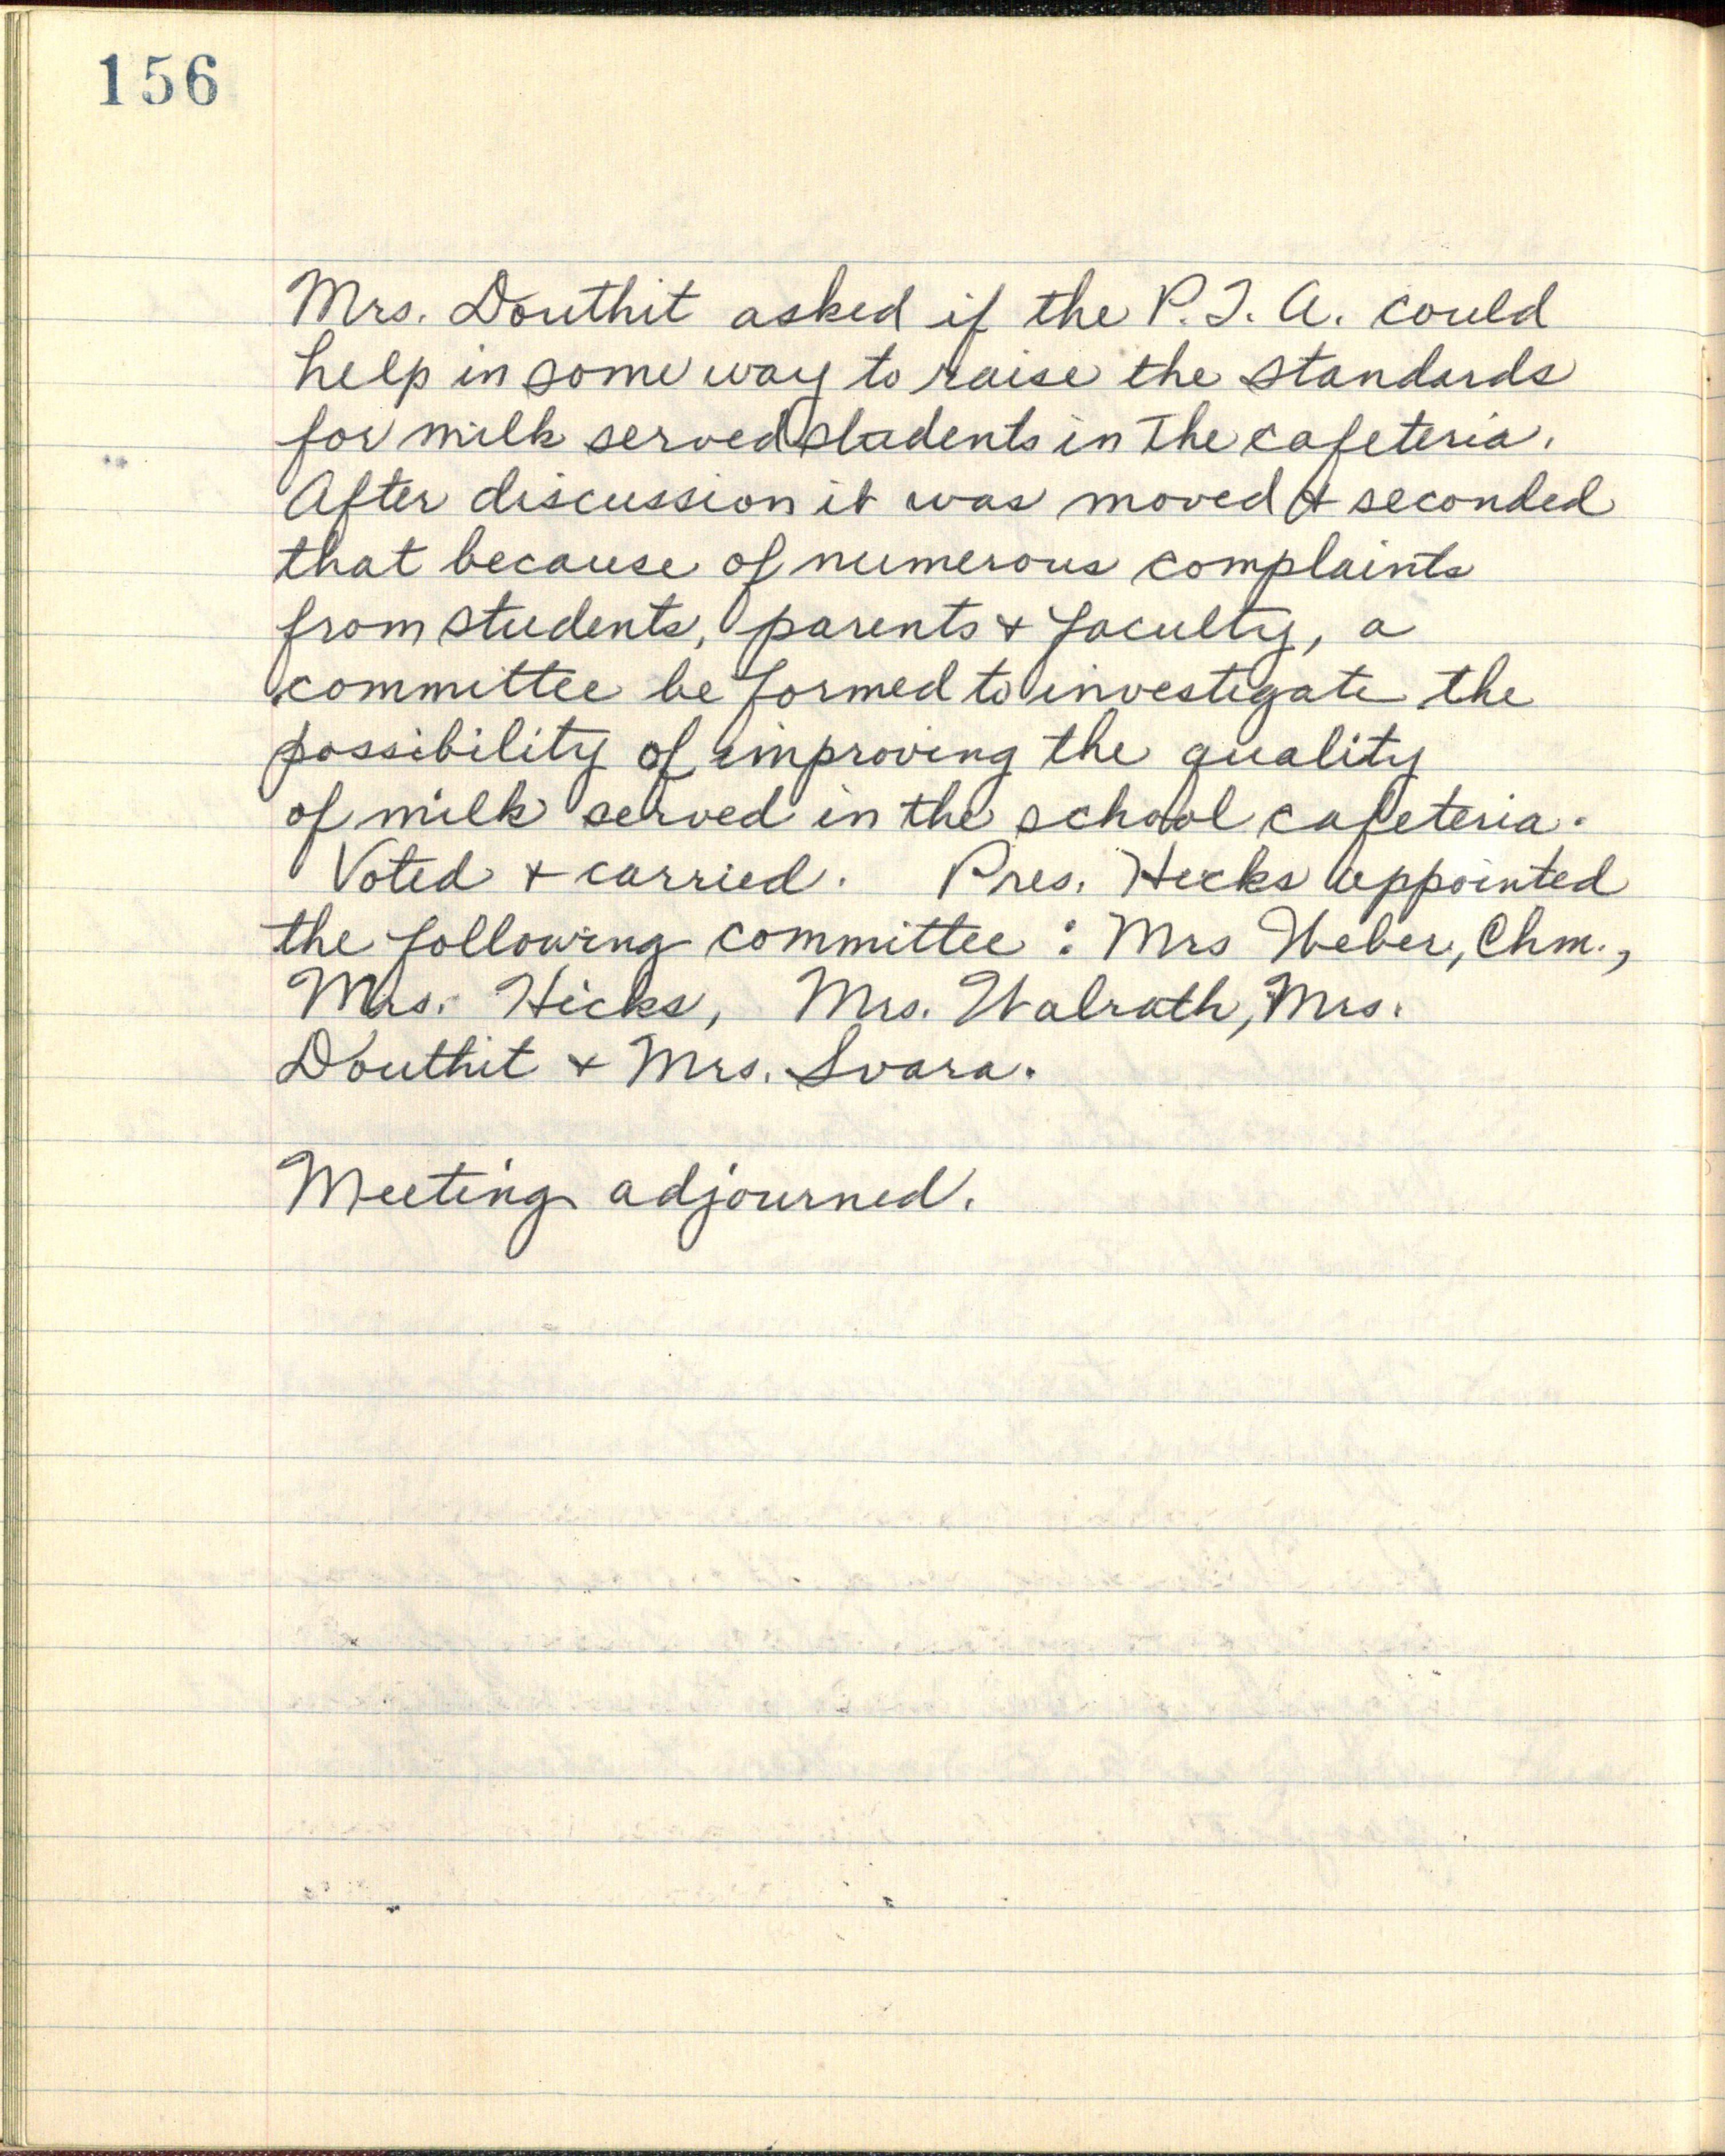 156
Mrs. Douthit asked if the P.T.A. could
help in some way to raise the standards
for milk served students in the cafeteria.
After discussion it was moved & seconded
that because of numerous complaints
from students, parents & faculty, a
committee be formed to investigate the
possibility of improving the quality
of milk served in the school cafeteria.
Voted & carried. Pres. Hicks appointed
the following committee : Mrs Weber, Chm.,
Mrs. Hicks, Mrs. Walrath, Mrs.
Douthit & Mrs. Svara.
Meeting adjourned.